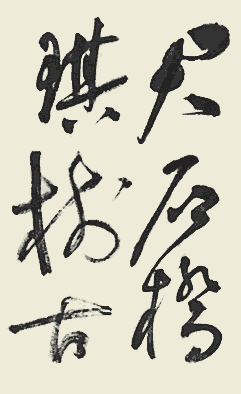 尺石橋
琪樹古